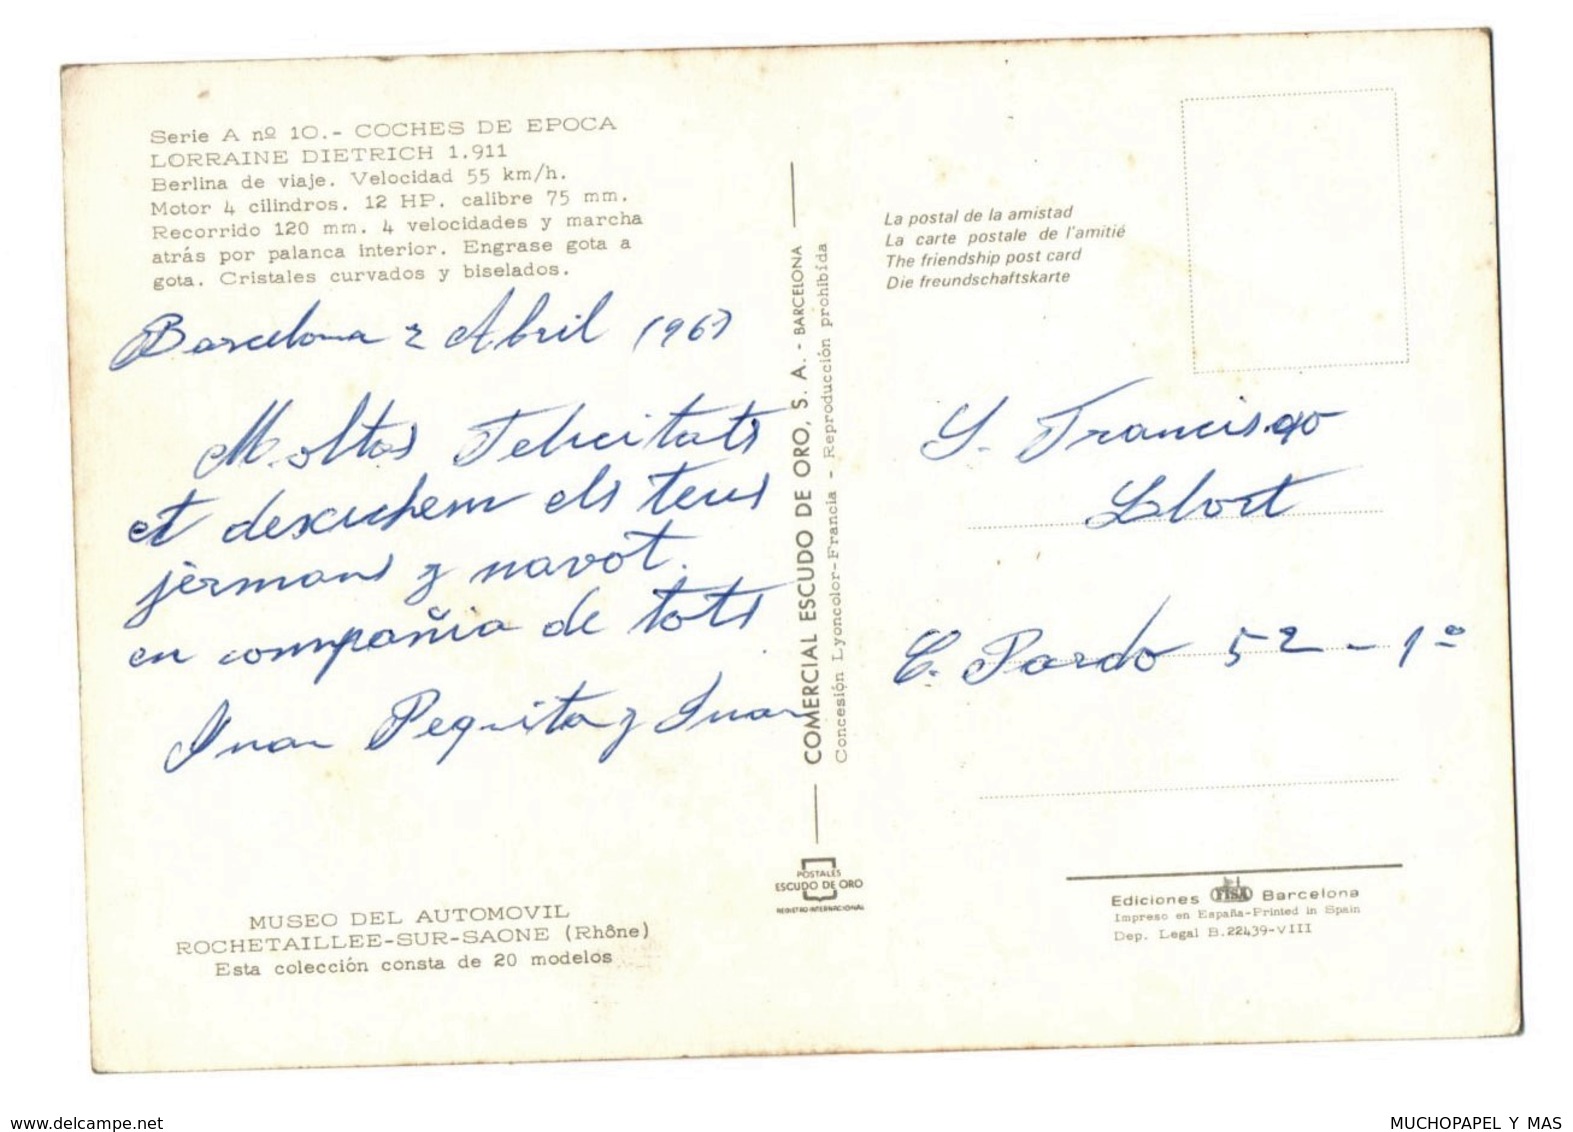 Serie A nº 10.- COCHES DE EPOCA
LORRAINE DIETRICH 1.911
Berlina de viaje. Velocidad 55 km/h.
Motor 4 cilindros. 12 HP. calibre 75 mm.
Recorrido 120 mm. 4 velocidades y marcha
atrás por palanca interior. Engrase gota a
gota. Cristales curvados y biselados.
Barcelona 2 Abril 1967
Moltas Felicitats
et desichem els teus
jèrmans y navot.
en compañia de tots
Juan Pequita y Juan
MUSEO DEL AUTOMOVIL
ROCHETAILLEE-SUR-SAONE (Rhône)
Esta colección consta de 20 modelos
COMERCIAL ESCUDO DE ORO, S. A. - BARCELONA
Concesión Lyoncolor-Francia - Reproducción prohibida
POSTALES
ESCUDO DE ORO
REGISTRO INTERNACIONAL
La postal de la amistad
La carte postale de l'amitié
The friendship post card
Die freundschaftskarte
S. Francisco
Llort
C. Pardo 52 - 1º
Ediciones FISA Barcelona
Impreso en España-Printed in Spain
Dep. Legal B. 22439-VIII
www.delcampe.net
MUCHOPAPEL Y MAS